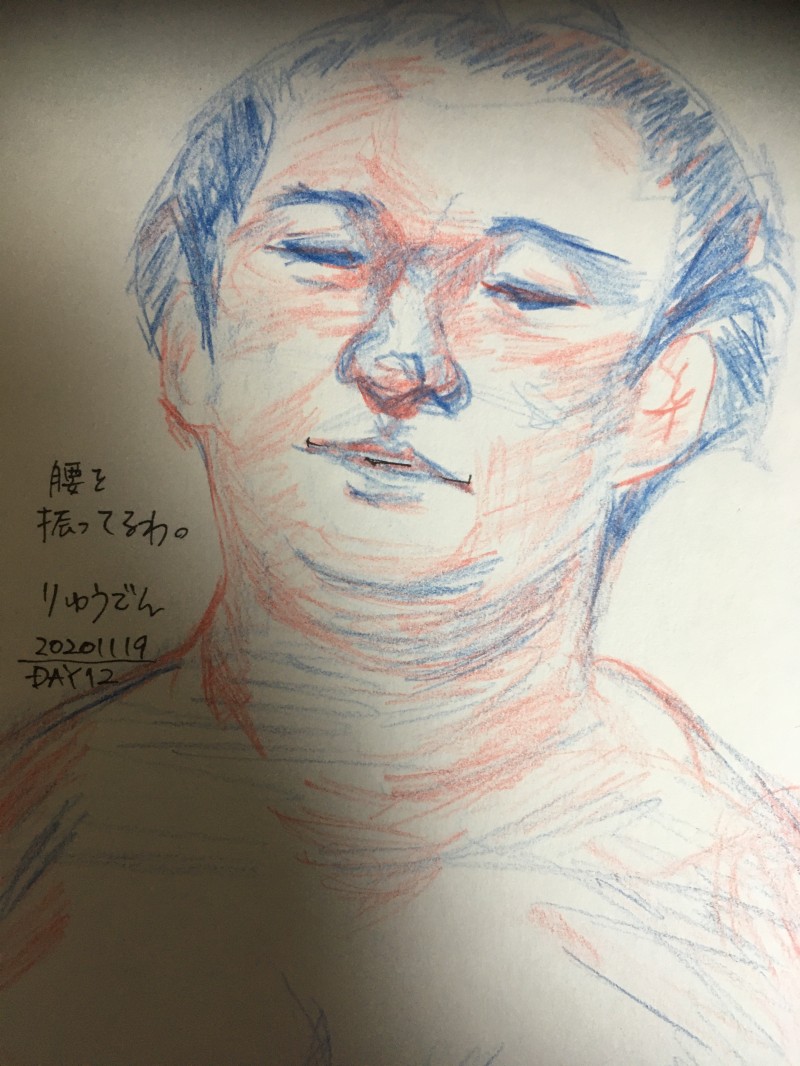 腰を
振ってるわ。
りゅうでん
20201119
DAY12